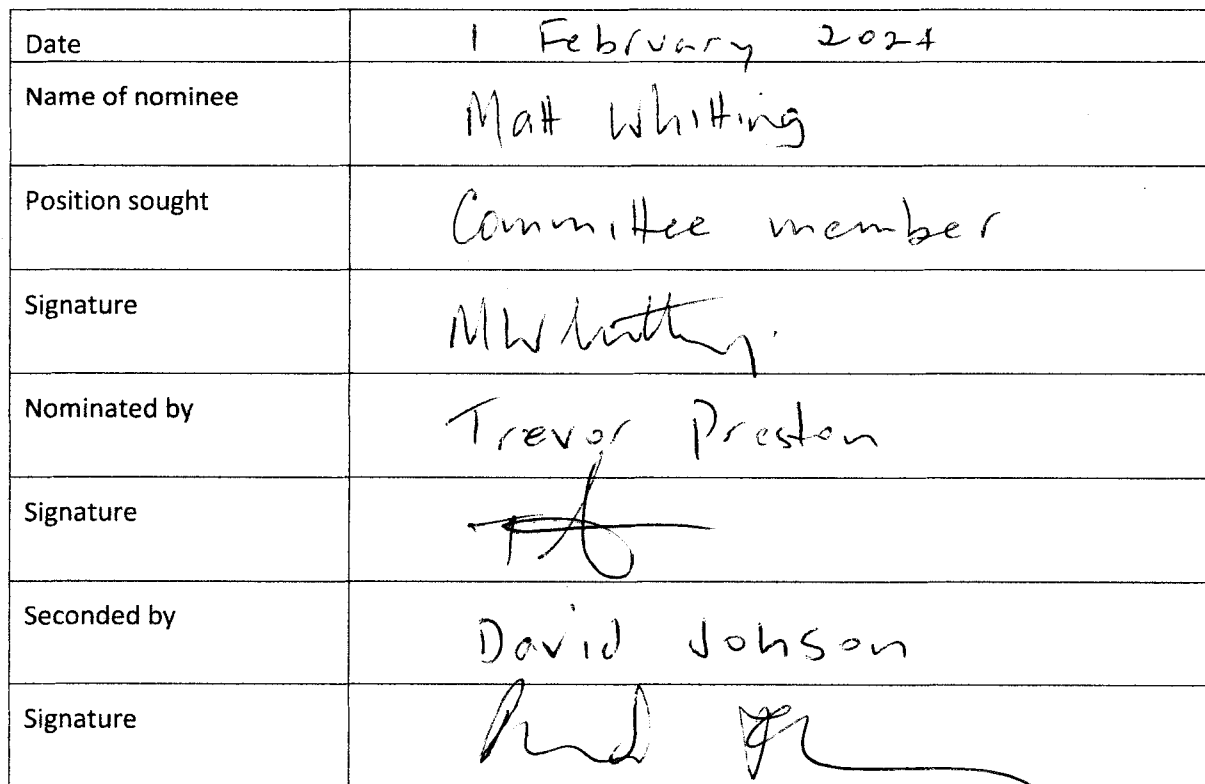 Date 1 February 2024
Name of nominee Matt Whitting
Position sought Committee member
Signature MWhitting.
Nominated by Trevor Preston
Signature
Seconded by David Johson
Signature